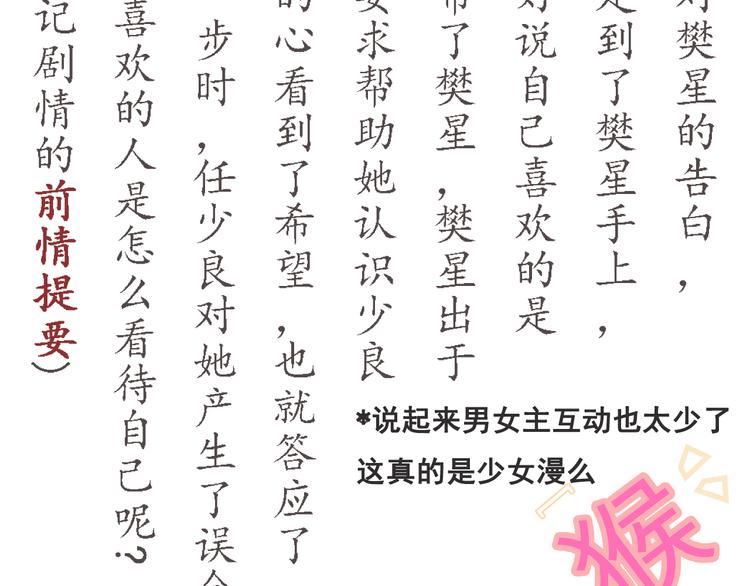 樊星的告白，
到了樊星手上，
说自己喜欢的是
了樊星，樊星出于
求帮助她认识少良
的心看到了希望，也就答应了
步时，任少良对她产生了误
喜欢的人是怎么看待自己呢？
记剧情的前情提要）
*说起来男女主互动也太少了
这真的是少女漫么
猴